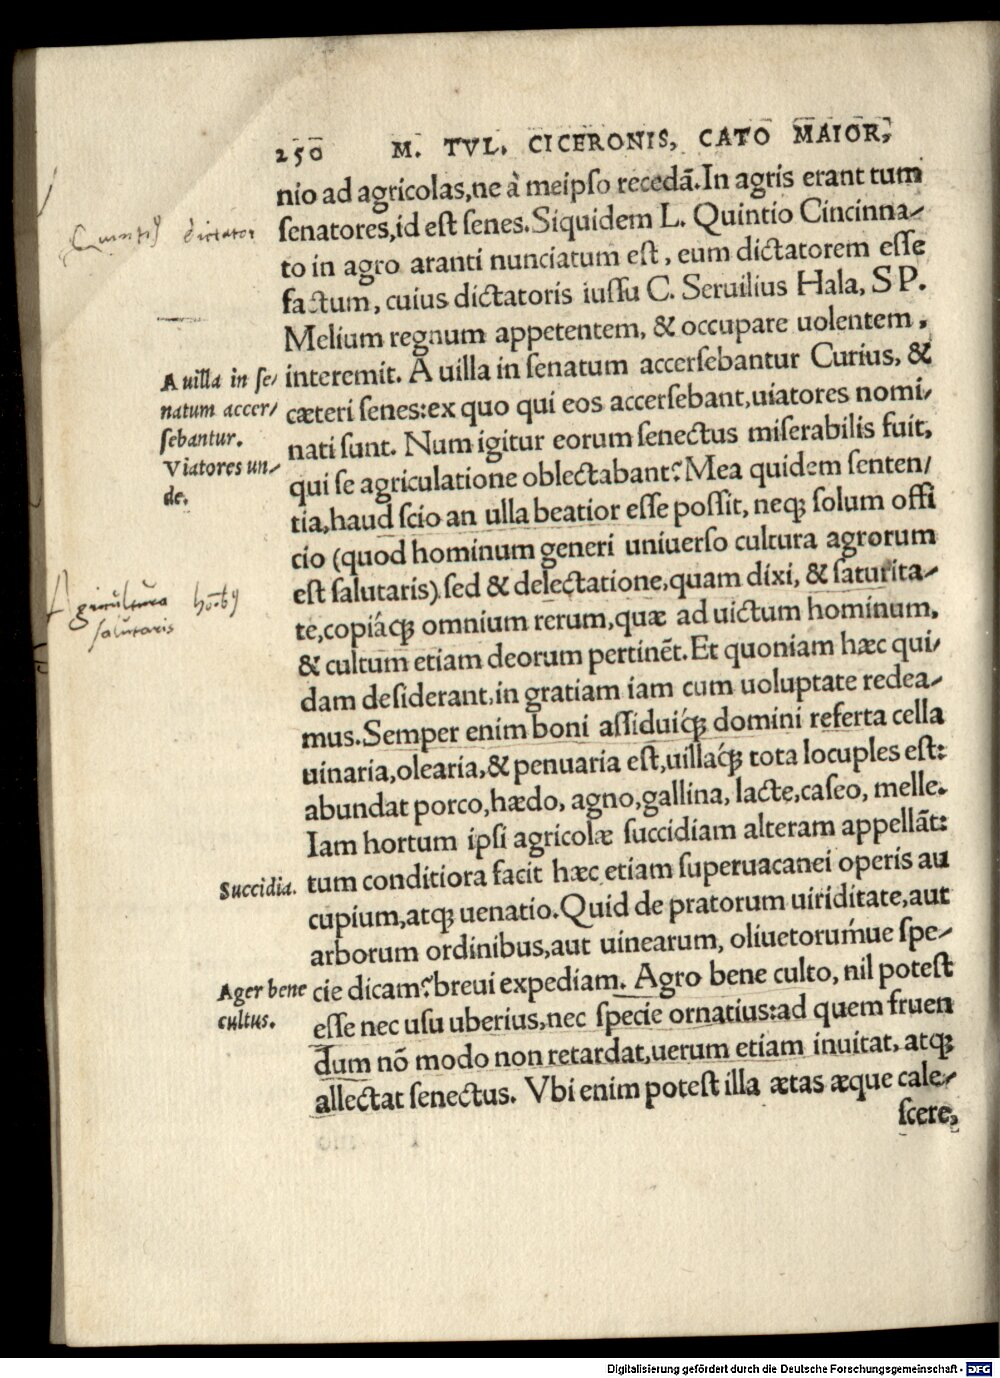 250 M. TVL. CICERONIS, CATO MAIOR,
nio ad agricolas,ne à meipſo recedā.In agris erant tum
ſenatores,id eſt ſenes.Siquidem L. Quintio Cincinna-
to in agro aranti nunciatum eſt, eum dictatorem eſſe
factum, cuius dictatoris iuſſu C. Seruilius Hala, SP.
Melium regnum appetentem, & occupare uolentem,
interemit. A uilla in ſenatum accerſebantur Curius, &
cæteri ſenes:ex quo qui eos accerſebant,uiatores nomi/
nati ſunt. Num igitur eorum ſenectus miſerabilis fuit,
qui ſe agriculatione oblectabant? Mea quidem ſenten/
tia,haud ſcio an ulla beatior eſſe poſſit, neqꝫ ſolum offi
cio (quod hominum generi uniuerſo cultura agrorum
eſt ſalutaris) ſed & delectatione,quam dixi, & ſaturita-
te,copiáqꝫ omnium rerum,quæ ad uictum hominum,
& cultum etiam deorum pertinēt.Et quoniam hæc qui/
dam deſiderant,in gratiam iam cum uoluptate redea-
mus.Semper enim boni aſſiduíqꝫ domini referta cella
uinaria,olearia,& penuaria eſt,uilláqꝫ tota locuples eſt:
abundat porco,hædo, agno,gallina, lacte,caſeo, melle.
Iam hortum ipſi agricolæ ſuccidiam alteram appellāt:
tum conditiora facit hæc etiam ſuperuacanei operis au
cupium,atqꝫ uenatio.Quid de pratorum uiriditate,aut
arborum ordinibus,aut uinearum, oliuetorúmue ſpe-
cie dicam? breui expediam. Agro bene culto, nil poteſt
eſſe nec uſu uberius,nec ſpecie ornatius:ad quem fruen
dum nō modo non retardat,uerum etiam inuitat, atqꝫ
allectat ſenectus. Vbi enim poteſt illa ætas æque cale-
ſcere,
dictator
A uilla in ſe/
natum accer/
ſebantur.
Viatores un-
de.
Agricultura
ſalutaris
Succidia.
Ager bene
cultus.
Digitalisierung gefördert durch die Deutsche Forschungsgemeinschaft - DFG